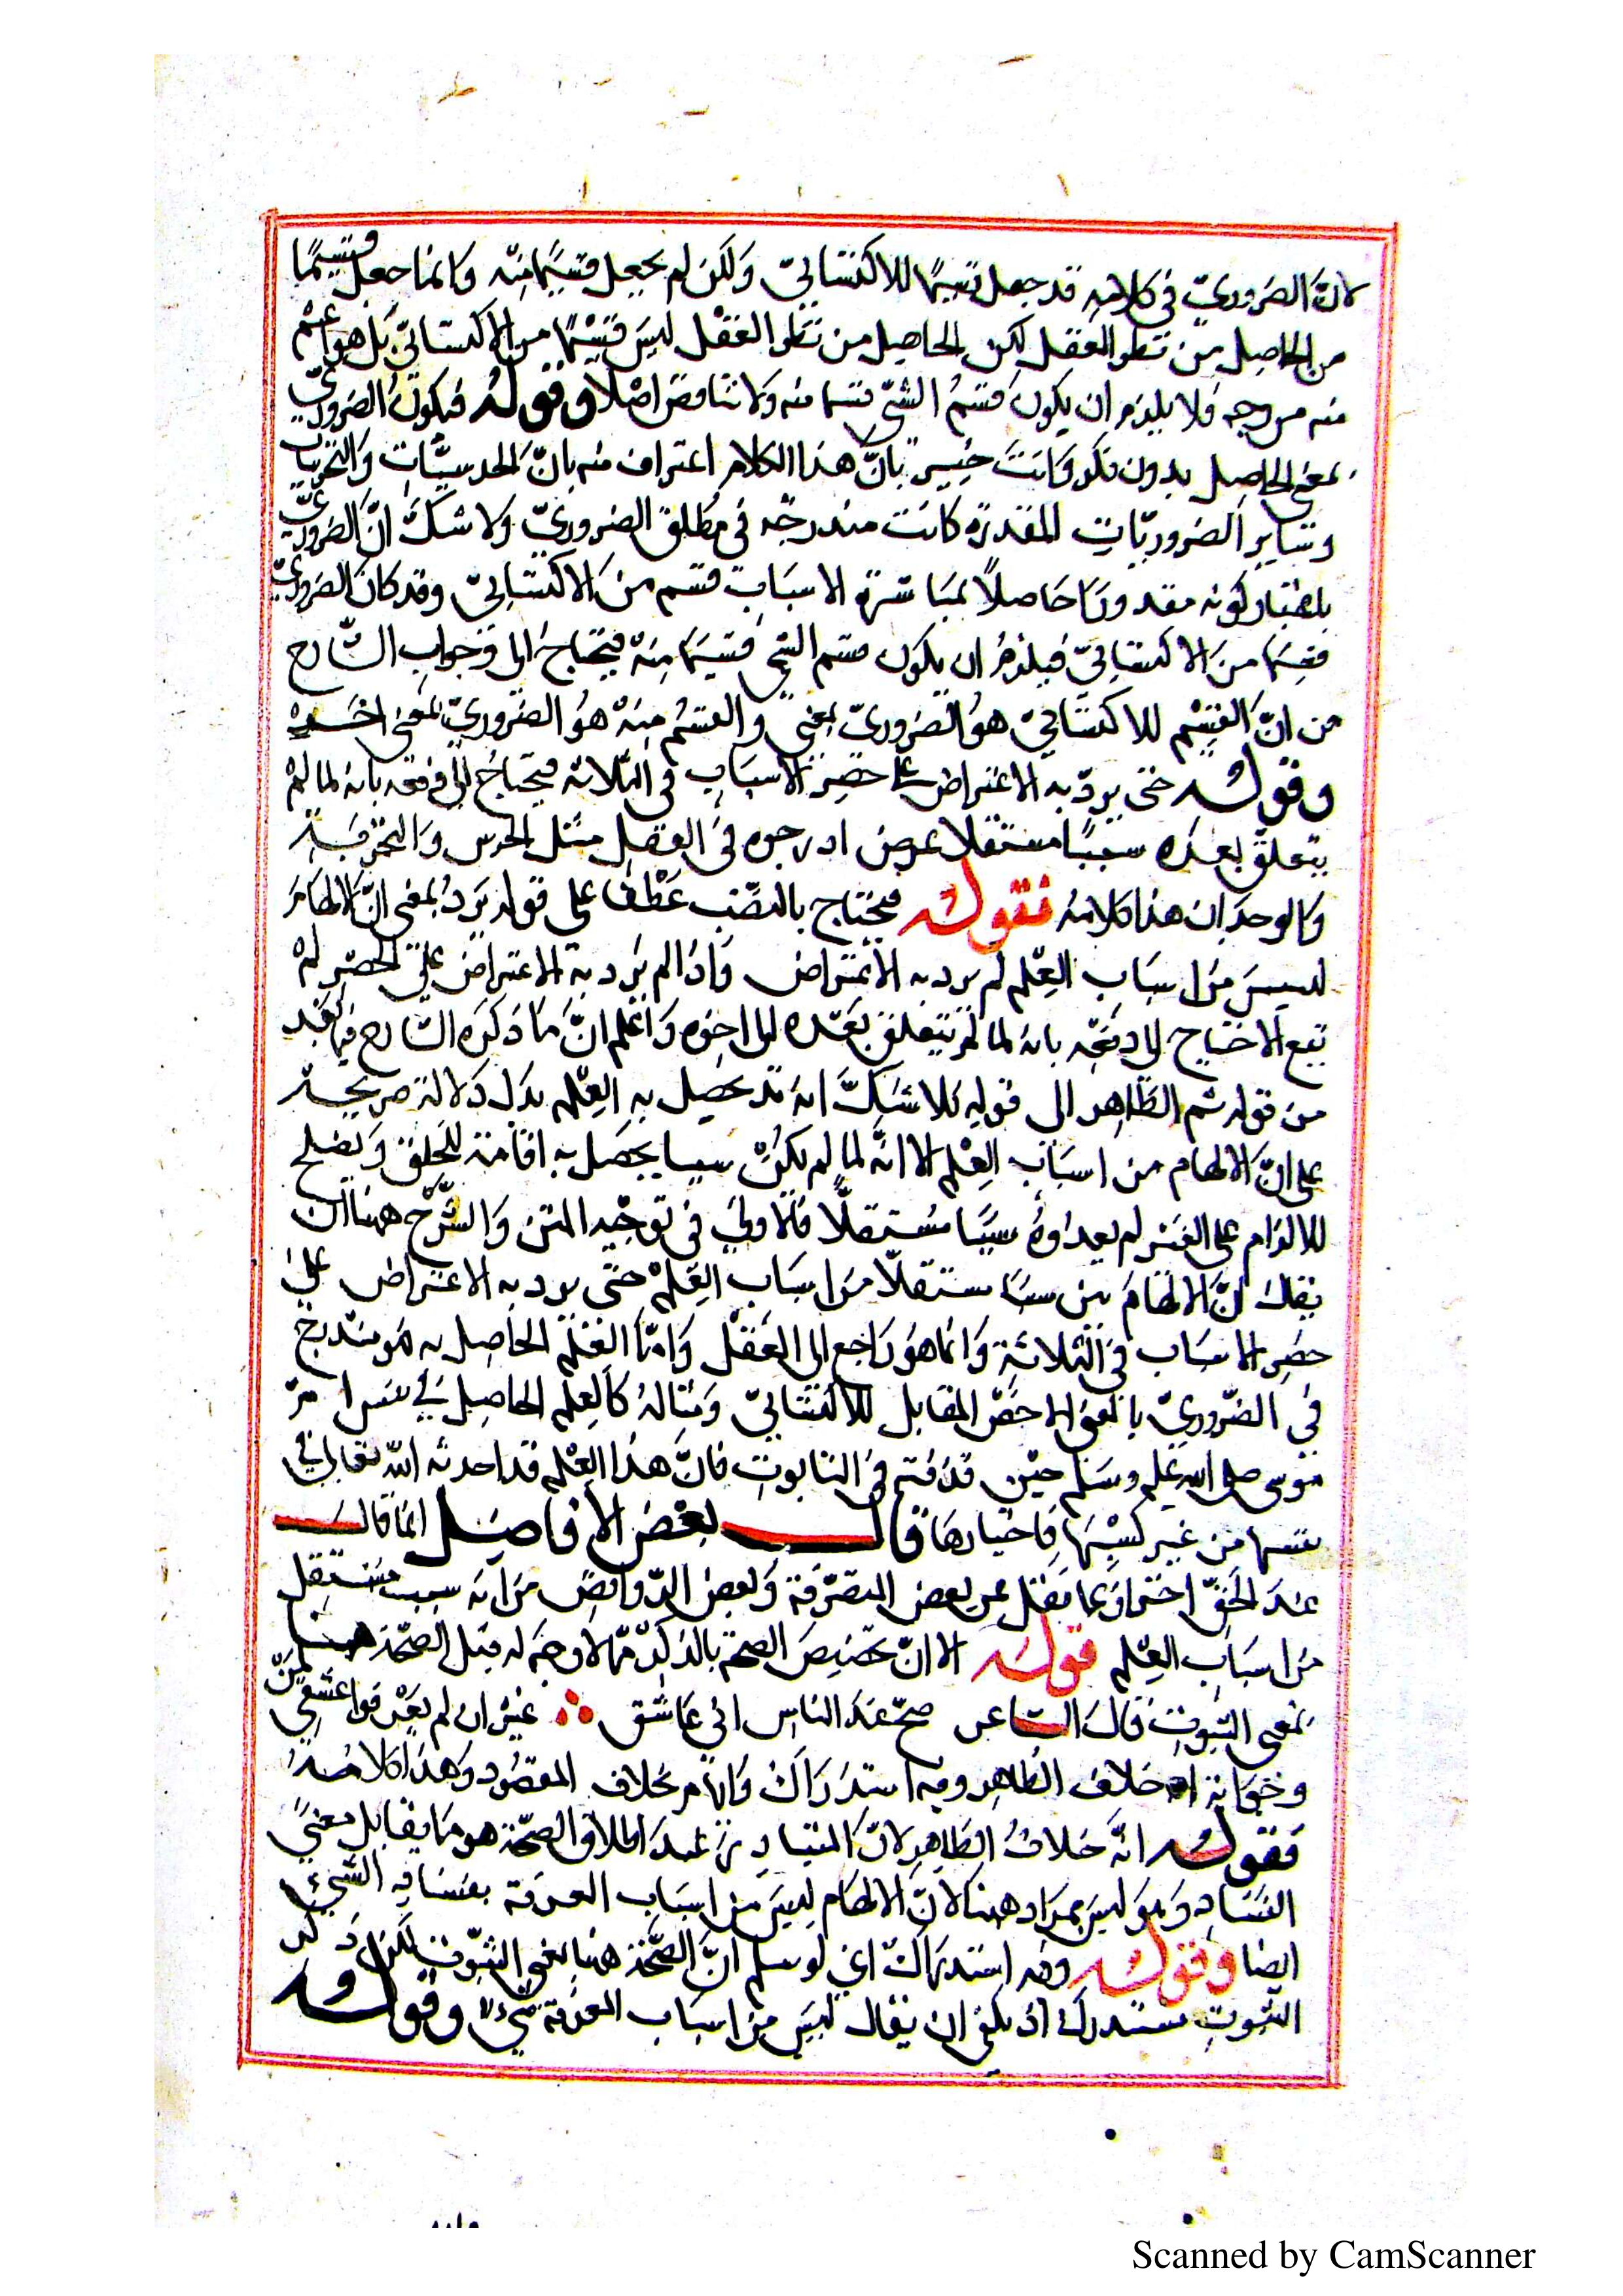 لانّ الضروريّ في كلامه قد جعل قسيمًا للاكتسابيّ ولكن لم يجعل قسيما منه وانما جعل قسيمًا
من الحاصل من نظر العقل لكن الحاصل من نظر العقل ليس قسيمًا من الاكتسابيّ بل هو اعمّ
منه من وجه فلا يلزم ان يكون قسمُ الشئ قسيما منه ولا تناقض اصلا وقوله فيكون الضروريّ
بمعنى الحاصل بدون فكر وانت خبير بانّ هذا الكلام اعتراف منه بانّ الحدسيّات والتجربيات
وساير الضروريّات المقدرة كانت مندرجة في مطلق الضروريّ ولا شكّ انّ الضروريّ
باعتبار كونه مقدورا حاصلاً بمباشرة الاسباب قسم من الاكتسابيّ وقد كان الضروريّ
قسيما من الاكتسابيّ فيلزم ان يكون قسم الشئ قسيما منه فيحتاج الى جواب الشّارح
من انّ القسيم للاكتسابيّ هو الضروريّ بمعنى والقسم منه هو الضروريّ بمعنى اخر
وقوله حتى يردّ به الاعتراض على حصر الاسباب في الثلاثة فيحتاج الى دفعه بانه لما لم
يتعلق بعدّه سببًا مستقلا غرض ادرجوه في العقل مثل الحدس والتجربة
والوجدان هذا كلامه فقوله فيحتاج بالنصب عطف على قوله يردُ بمعنى انّ الالهام
ليس من اسباب العلم لم يرد به الاعتراض واذا لم يرد به الاعتراض على الحصر لم
يقع الاحتياج الى دفعه بانه لما لم يتعلق بعدّه الى اخره واعلم انّ ما ذكره الشارح فيما بعد
من قوله ثم الظاهر الى قوله فلا شكّ انه قد يحصل به العلم يدل دلالة صريحة
على انّ الالهام من اسباب العلم الا انّه لما لم يكن سببا يحصل به اقامة للخلق ويصلح
للالزام على الغير لم يعدّوهُ سببًا مستقلّا فالاولى في توجيه المتن والشّرح ههنا ان
يقال انّ الالهام ليس سببًا مستقلّا من اسباب العلم حتى يرد به الاعتراض على
حصر الاسباب في الثلاثة وانما هو راجع الى العقل وامّا العلم الحاصل به فهو مندرج
في الضّروريّ بالمعنى الاخصّ المقابل للاكتسابيّ ومثاله كالعلم الحاصل في نفس امّ
موسى صلى الله عليه وسلم حين قذفته في التابوت فانّ هذا العلم قد احدثه الله تعالى في
نفسها من غير كسبها واختيارها قال بعض الافاضل انما قال
عند الحقّ احترازًا عما نقل عن بعض المتصوّفة وبعض الروافض من انه سبب مستقل
من اسباب العلم قوله الا انّ تخصيص الصحة بالذكر ممّا لا وجه له قيل الصحّة ههنا
بمعنى الثبوت قال الشاعر صحّ عند الناس اني عاشق ∴ غير ان لم يعرفوا عشقي لمن
وخبانة خلاف الظاهر وفيه استدراك وايهام بخلاف المقصود وهذا كلامه
فقوله انّه خلافُ الظاهر لانّ المتبادر عند اطلاق الصحّة هو ما يقابل معنى
الفساد وهو ليس بمراد ههنا لانّ الالهام ليس من اسباب المعرفة بفساد الشئ
ايضا وقوله وفيه استدراك اي لو سلم انّ الصحّة هنا بمعنى الثبوت لكن ذكر
الثبوت مستدرك اذ يكفي ان يقال ليس من اسباب المعرفة بشئ وقوله
Scanned by CamScanner